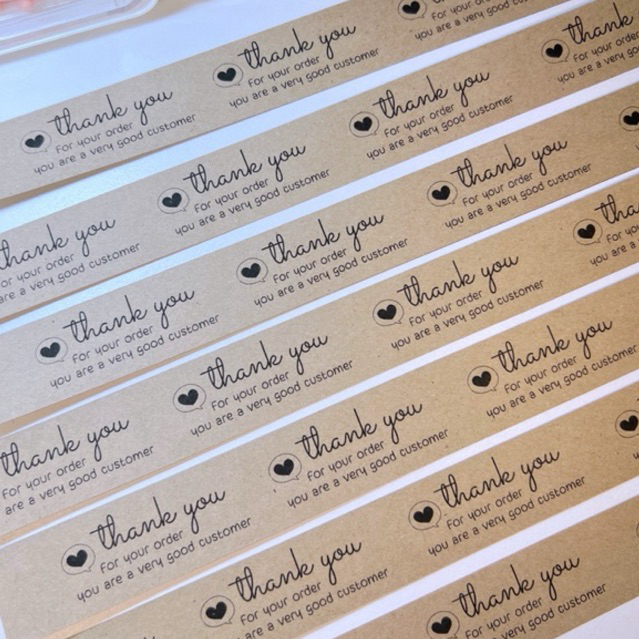 thank you
For your order
you are a very good customer
thank you
For your order
you are a very good customer
For your order
you are a very good
thank you
For your order
are a very good customer
thank you
For your order
you are a very good customer
thank you
For your order
you are a very good customer
thank
For your
you are a very
thank you
For your order
you are a very good customer
thank you
For your order
you are a very good customer
thank you
For your order
you are a very good customer
thank you
For your order
are a very good customer
thank you
For your order
you are a very good customer
thank you
For your order
you are a very good customer
For
you are
thank you
For your order
you are a very good customer
thank you
For your order
you are a very good customer
thank you
For your order
you are a very good customer
thank you
For your order
you are a very good customer
thank you
For your order
you are a very good customer
thank you
For your order